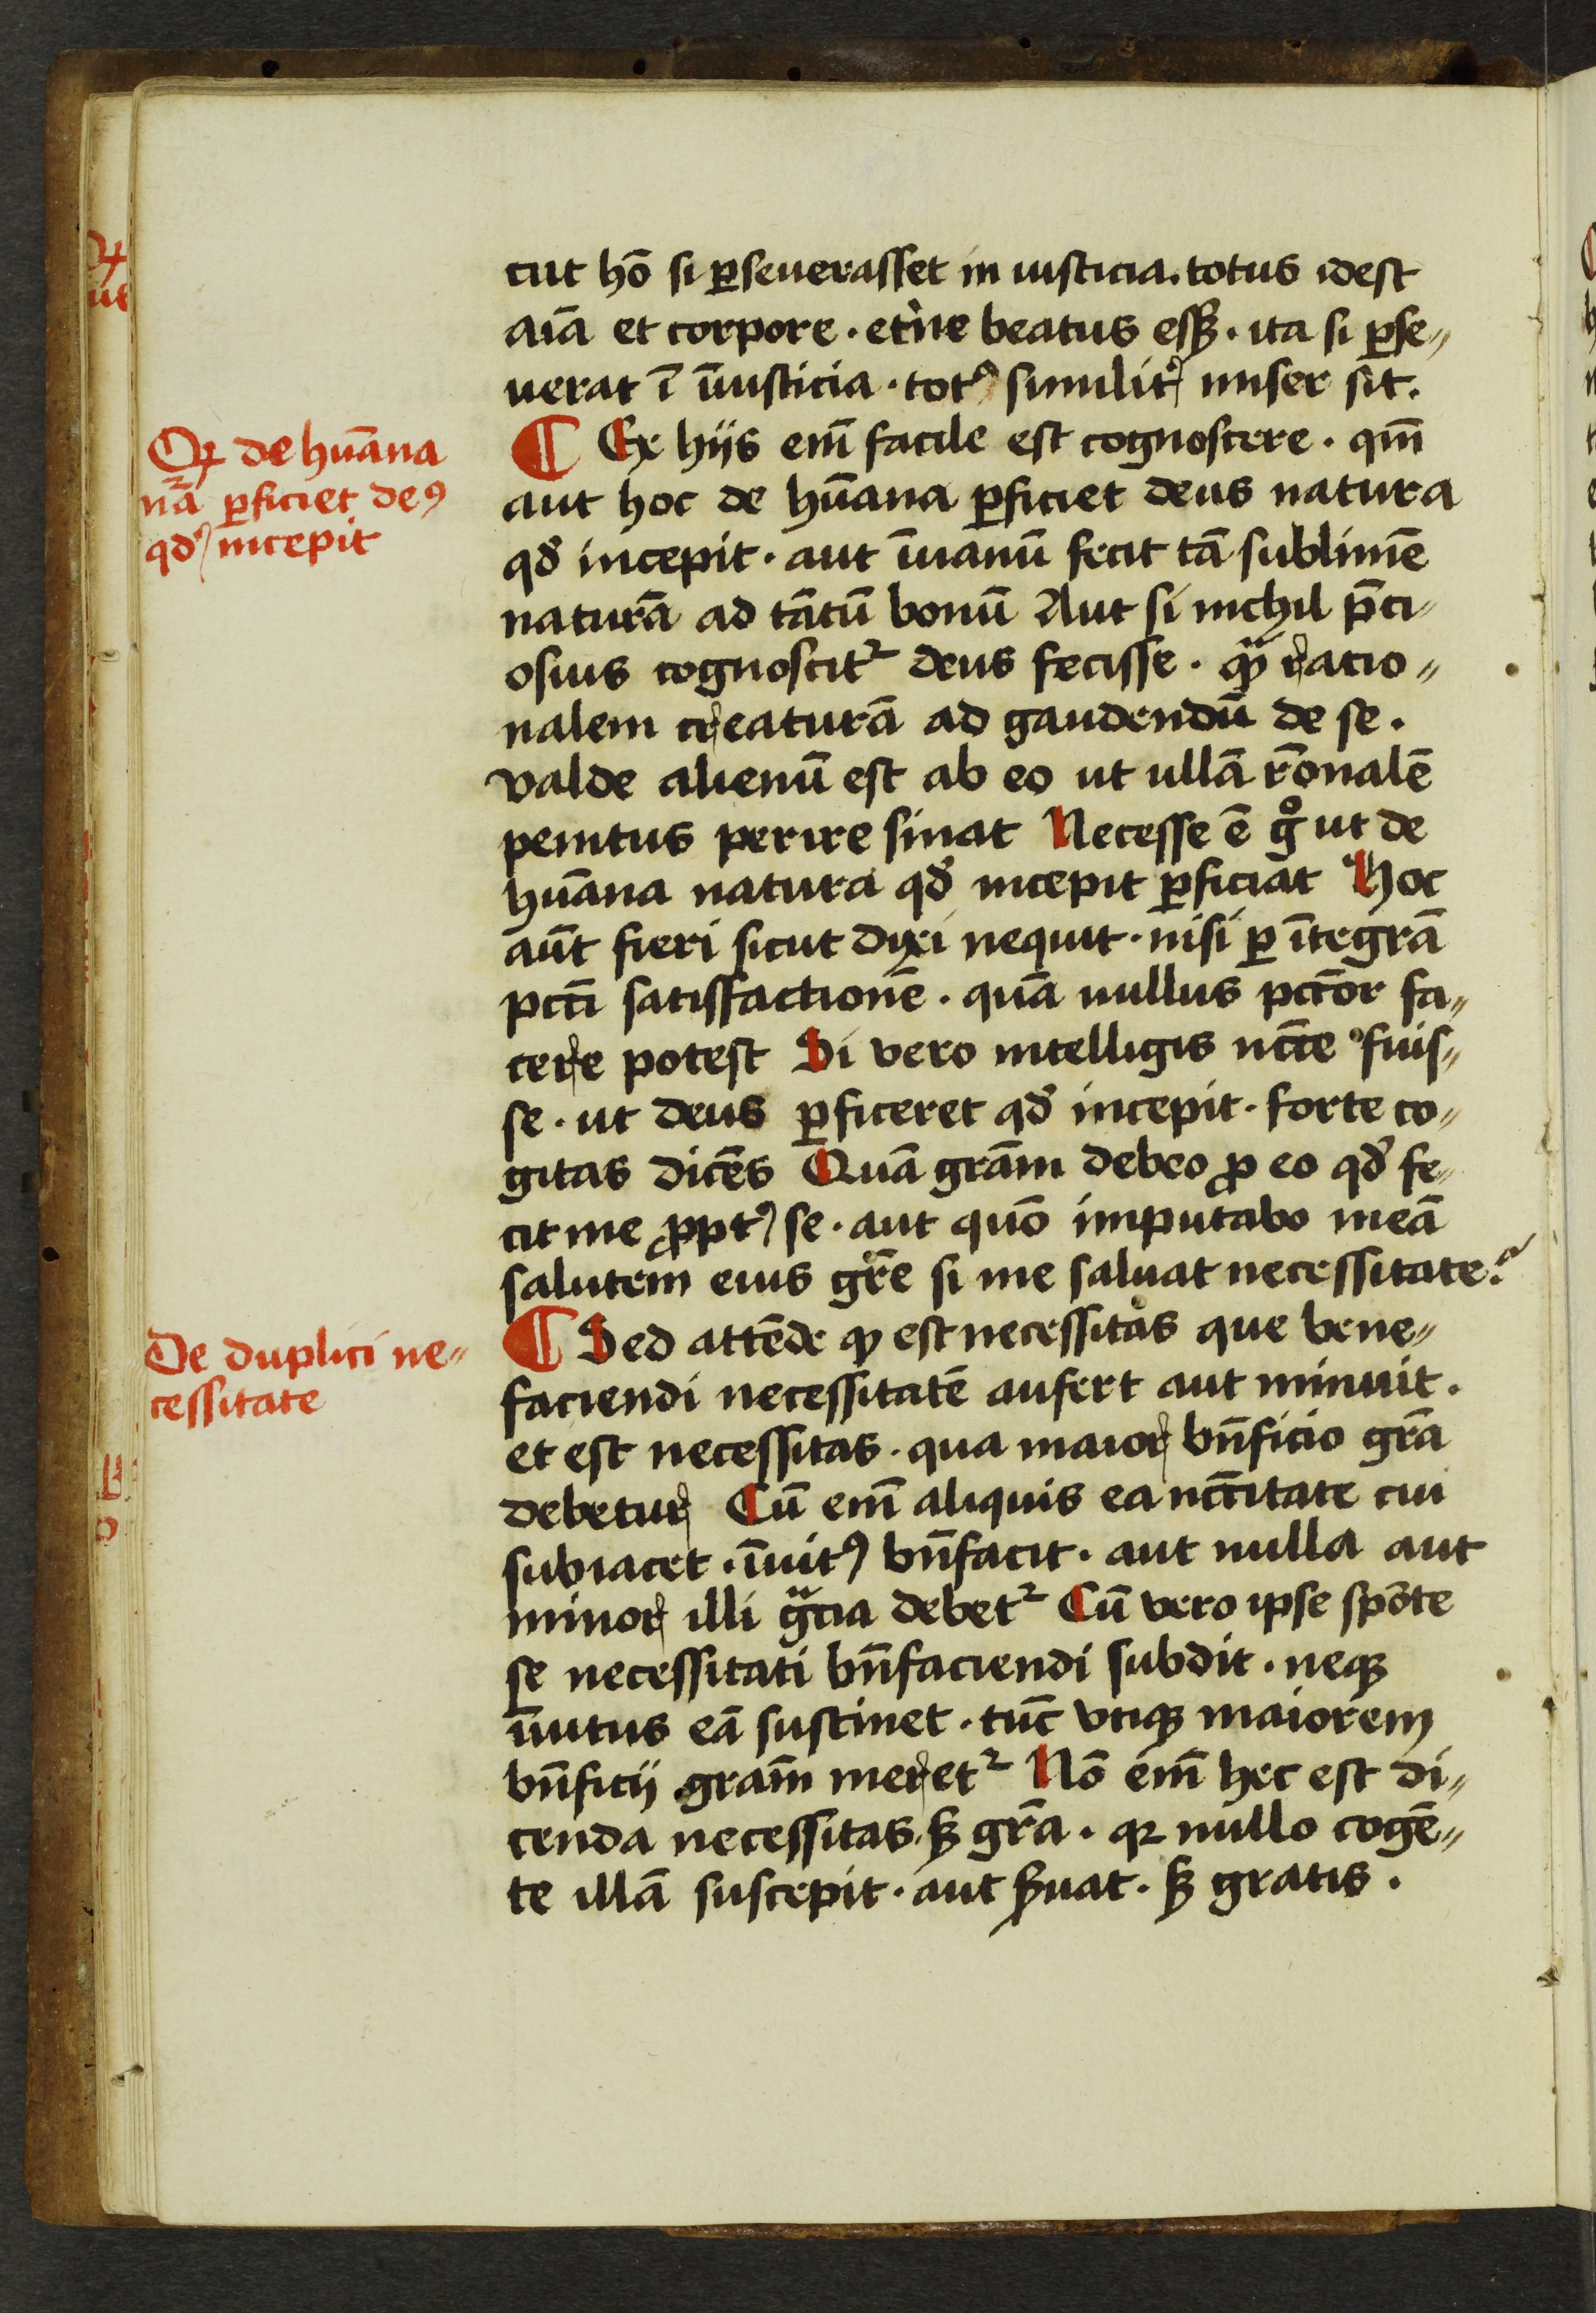 cut hō si ꝑseuerasset in iusticia. totus idest
aīa et corpore. et̾ne beatus esꝫ. ita si ꝑse„
uerat ī ūusticia. totꝰ similit᷑ miser sit.
Qꝛ de huāna
nã̄ ꝑficiet deꝰ
qd᷑ incepit
¶ Ex hijs em̄ facile est cognoscere. qm̄
aut hoc de hūana ꝑficiet deus natura
qd᷑ incepit. aut īuanū fecit tā sublimē
naturā ad tātū bonū Aut si nichil p̄ci„
osius cognoscit᷑ deus fecisse. qᷓ ratio„
nalem creaturā ad gaudendū de se.
valde alienū est ab eo ut ullā r̄onalē
penitus perire sinat Necesse ē gͦ ut de
huāna natura qd᷑ incepit ꝑficiat Hoc
aūt fieri sicut dixi nequit. nisi ꝑ ītegrā
pctī satisfactionē. quā nullus pctōr fa„
cere potest Si vero intelligis nc̄c̄e fuis„
se. ut deus ꝑficeret qd᷑ incepit. forte co„
gitas dicēs Quā grām debeo ꝓ eo qd᷑ fe„
cit me ꝓptꝰ se. aut quō imputabo meā
salutem eius gr̄e si me saluat necessitate?
De duplici ne„
cessitate
¶ Sed attēde ꝙ est necessitas que bene„
faciendi necessitatē aufert aut minuit.
et est necessitas. qua maior bn̄ficio grā
debetur Cū em̄ aliquis ea nc̄c̄itate cui
subiacet. īuitꝰ bn̄facit. aut nulla aut
minor illi gᷓcia debet᷑ Cū vero ipse spōte
se necessitati bn̄faciendi subdit. neqꝫ
īuitus eā sustinet. tūc vtiqꝫ maiorem
bn̄ficij grām meret᷑ Nō em̄ hec est di„
cenda necessitas. sꝫ grā. qꝛ nullo cogē„
te illā suscepit. aut s̄uat. sꝫ gratis.